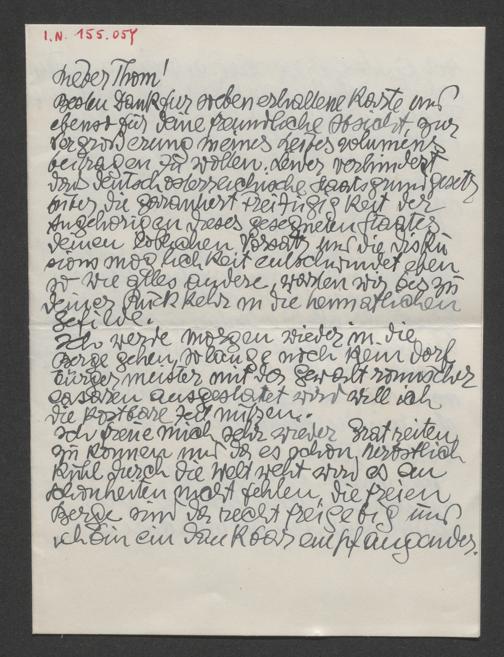 I.N. 155.054
Lieber Thom!
Besten Dank für soeben erhaltene Karte und
ebenso für deine freundliche Absicht, zur
Vergrößerung meines Leibesvolumens
beitragen zu wollen. Leider verhindert
das deutschösterreichische Staatsgrundgesetz
über die garantiert Freizügigkeit der
Angehörigen dieses gesegneten Staates
deinen löblichen Vorsatz und die Disku
sionsmöglichkeit entschwindet eben
so wie alles andere, warten wir bis zu
deiner Rückkehr in die heimatlichen
Gefilde.
Ich werde morgen wieder in die
Berge gehen, solange noch kein Dorf
bürgermeister mit der Gewalt römischer
Cäsaren ausgestattet wird will ich
die kostbare Zeit nützen.
Ich freue mich sehr wieder Gratreiten
zu können und da es schon herbstlich
kühl durch die Welt weht wird es an
Schönheiten nicht fehlen, die freien
Berge sind da recht freigebig und
ich bin ein dankbar empfangender.